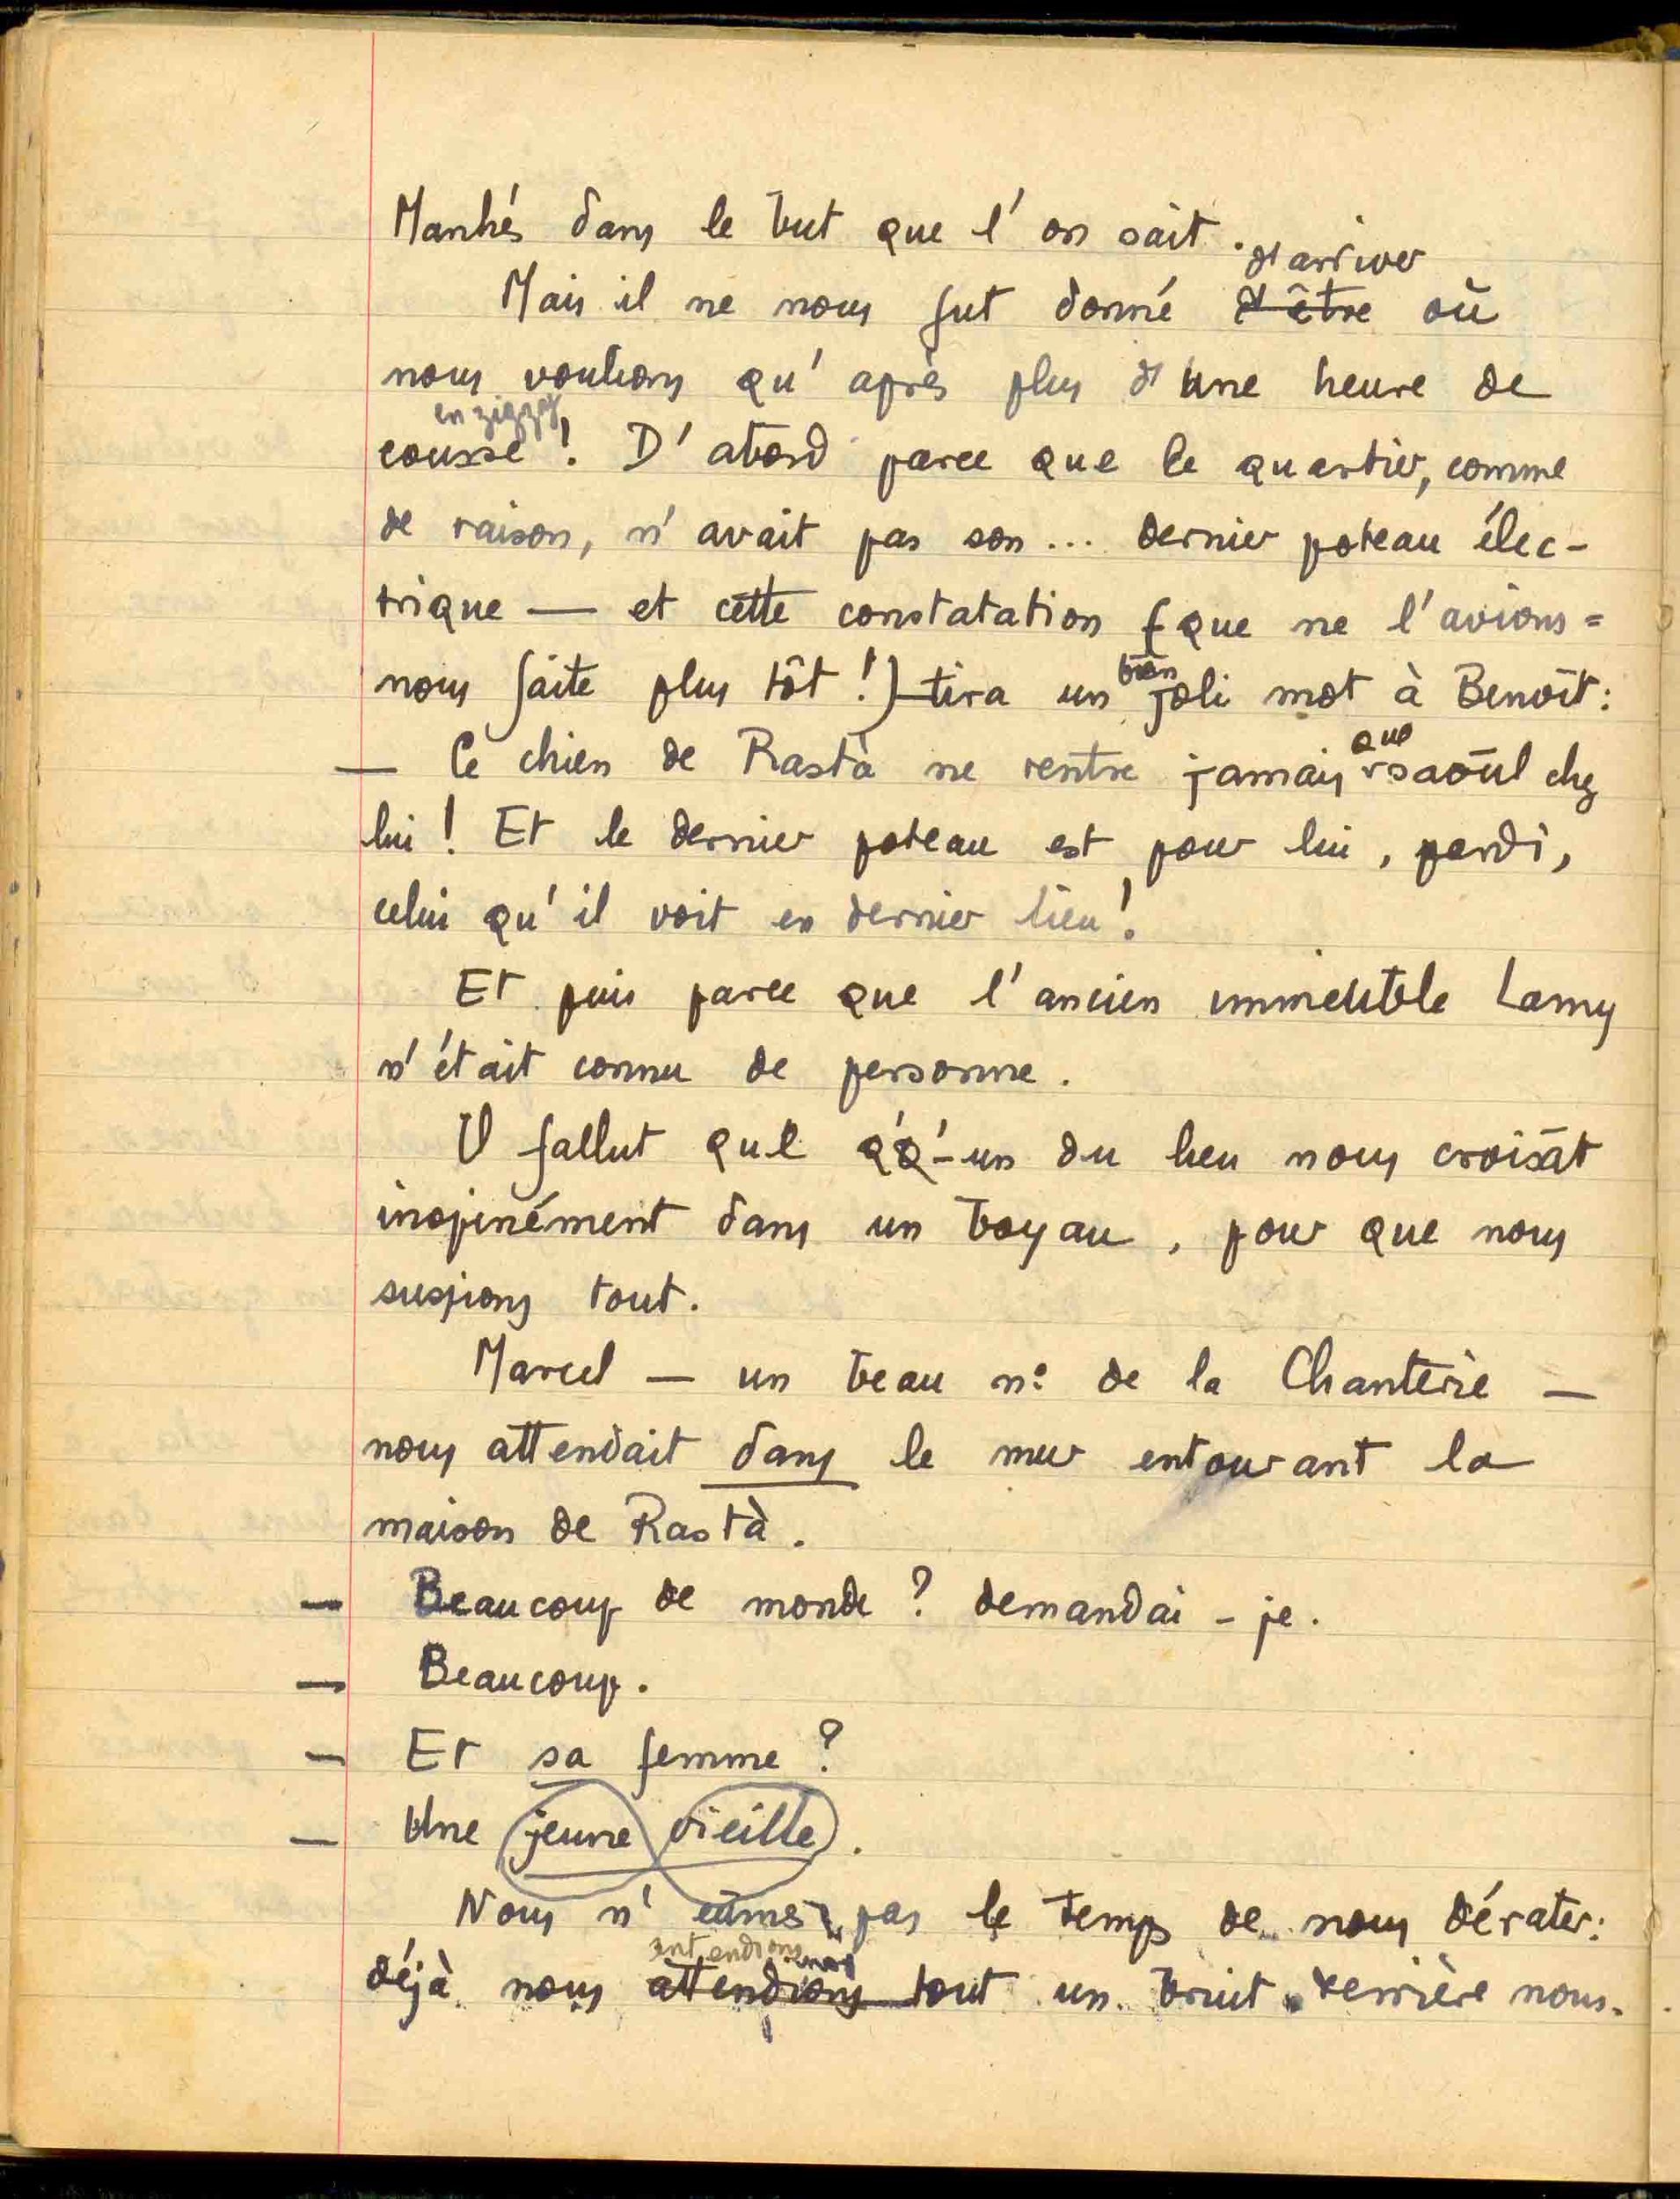 Marchés dans le but que l'on sait.
Mais il ne nous fut donné d'être d'arriver où
nous voulions qu'après plus d'une heure de
course en zigzag ! D'abord parce que le quartier, comme
de raison, n'avait pas son... dernier poteau élec-
trique — et cette constatation (que ne l'avions=
nous faite plus tôt !) tira un bien joli mot à Benoît :
— Ce chien de Rastà ne rentre jamais que saoûl chez
lui ! Et le dernier poteau est pour lui, pardi,
celui qu'il voit en dernier lieu !
Et puis parce que l'ancien immeuble Lamy
n'était connu de personne.
Il fallut que q'q'-un du lieu nous croisât
inopinément dans un boyau, pour que nous
suspions tout.
Marcel — un beau n° de la Chanterie —
nous attendait dans le mur entourant la
maison de Rastà.
— Beaucoup de monde ? demandai-je.
— Beaucoup.
— Et sa femme ?
— Une jeune vieille.
Nous n'eûmes pas le temps de nous dérater :
déjà nous attendions entendions tout un bruit derrière nous.